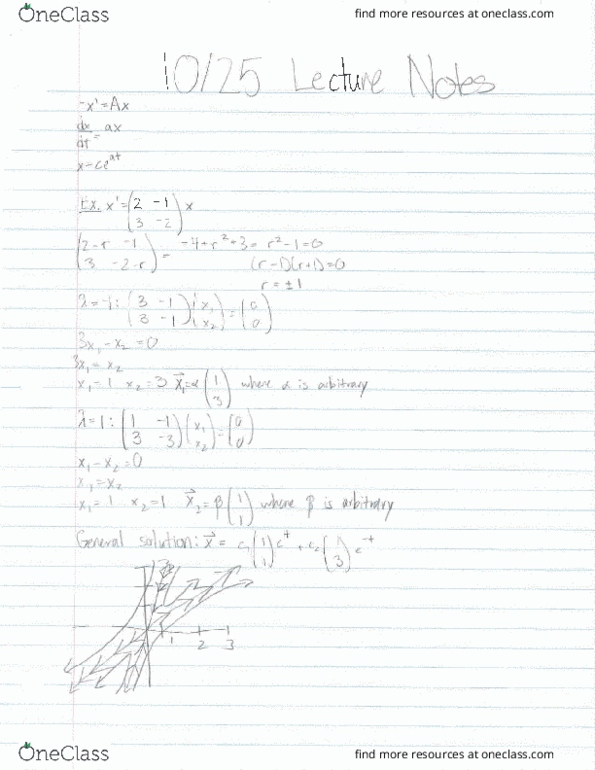 OneClass
find more resources at oneclass.com
10/25 Lecture Notes
-x'=Ax
dx/dt = ax
x=ce^{at}
Ex. x'=(2 -1; 3 -2)x
(2-r -1; 3 -2-r) = -4+r²+3= r²-1=0
(r-1)(r+1)=0
r=±1
λ=-1: (3 -1; 3 -1)(x₁; x₂)=(0; 0)
3x₁-x₂=0
3x₁=x₂
x₁=1 x₂=3 x⃗₁=α(1; 3) where α is arbitrary
λ=1: (1 -1; 3 -3)(x₁; x₂)=(0; 0)
x₁-x₂=0
x₁=x₂
x₁=1 x₂=1 x⃗₂=β(1; 1) where β is arbitrary
General solution: x⃗= c₁(1; 1)e^t + c₂(1; 3)e^{-t}
1 2 3
OneClass
find more resources at oneclass.com